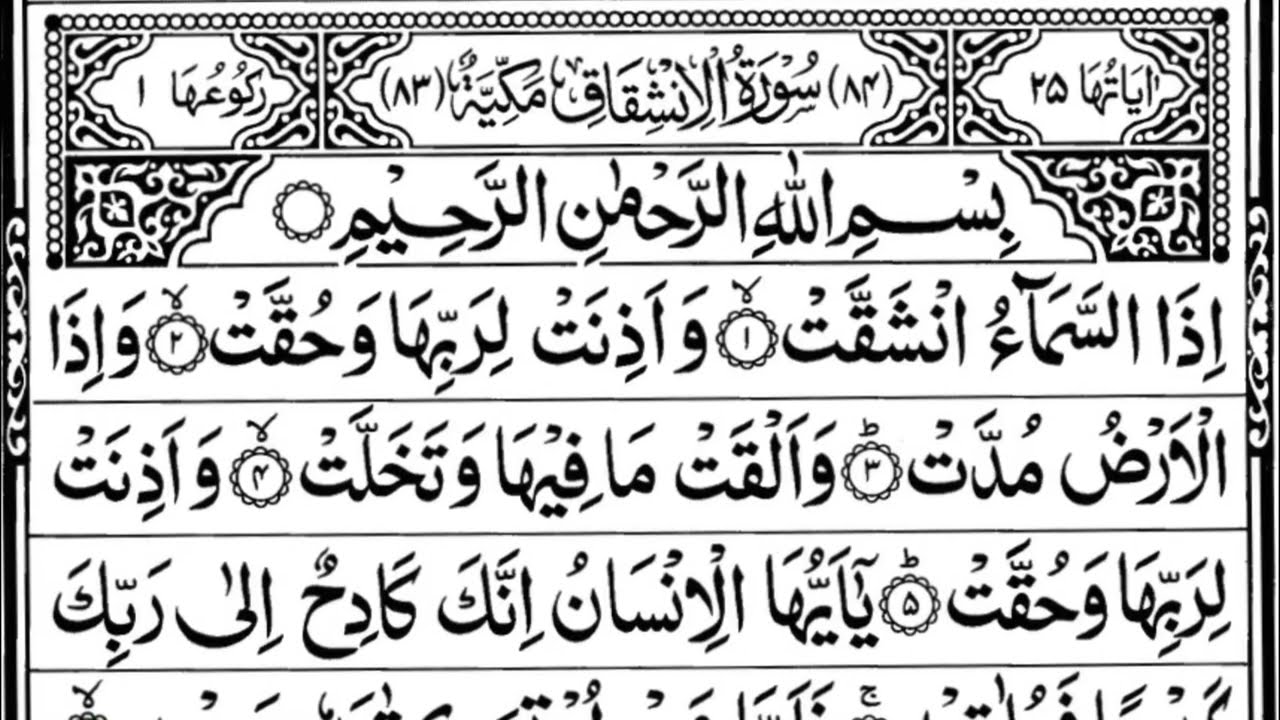 اٰيَاتُهَا ٢٥ (٨٤) سُوْرَةُ الْاِنْشِقَاقِ مَكِّيَّةٌ (٨٣) رُكُوْعُهَا ١
بِسْمِ اللّٰهِ الرَّحْمٰنِ الرَّحِيْمِ
اِذَا السَّمَآءُ انْشَقَّتْ ۙ﴿۱﴾ وَ اَذِنَتْ لِرَبِّهَا وَ حُقَّتْ ۙ﴿۲﴾ وَ اِذَا
الْاَرْضُ مُدَّتْ ؕ﴿۳﴾ وَ اَلْقَتْ مَا فِيْهَا وَ تَخَلَّتْ ۙ﴿۴﴾ وَ اَذِنَتْ
لِرَبِّهَا وَ حُقَّتْ ؕ﴿۵﴾ يٰۤاَيُّهَا الْاِنْسَانُ اِنَّكَ كَادِحٌ اِلٰى رَبِّكَ